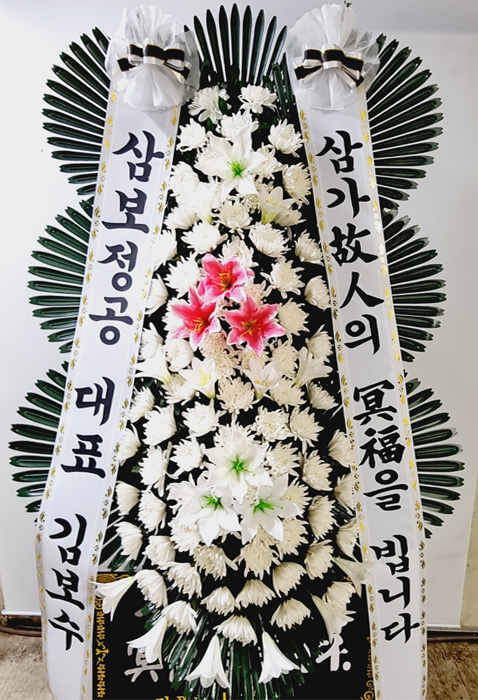 삼보정공 대표 김보수
삼가故人의 冥福을 빕니다
冥